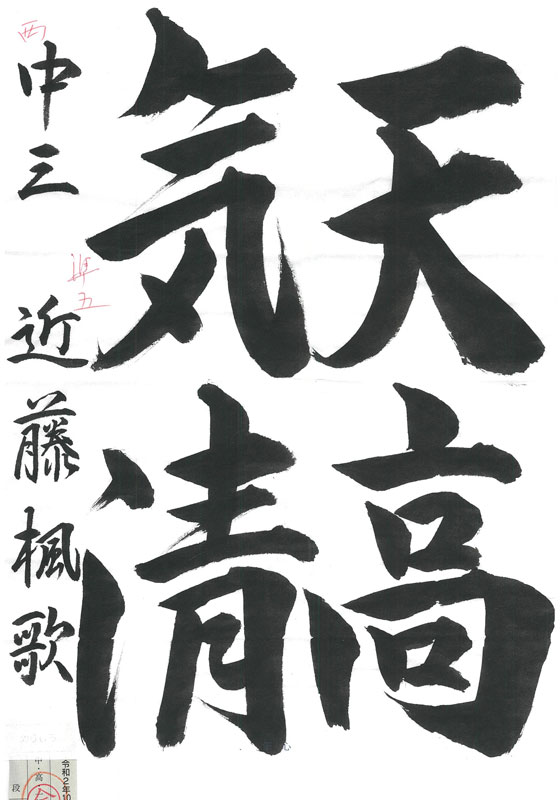 天高
気清
中三 近藤楓歌
西
準五
令和2年10
中・高
段